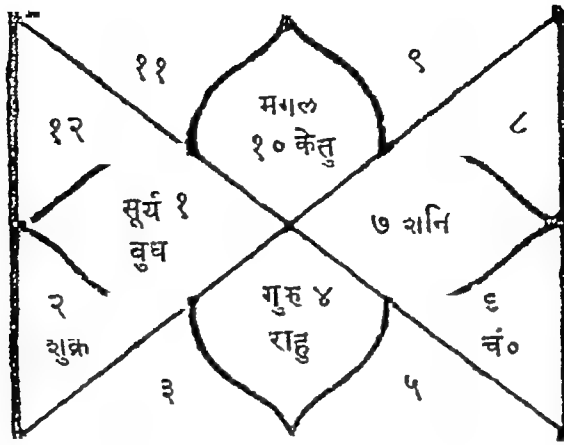 ११
९
मगल
१० केतु
१२
८
सूर्य १
बुध
७ शनि
२
शुक्र
गुरु ४
राहु
६
चं०
३
५